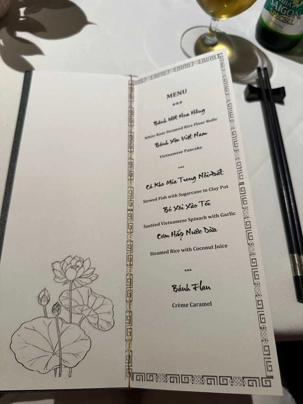 MENU
***
Bánh Ướt Hoa Hồng
White Rose Steamed Rice Flour Rolls
Bánh Xèo Việt Nam
Vietnamese Pancake
***
Cá Kho Mía Trong Nồi Đất
Stewed Fish with Sugarcane in Clay Pot
Bó Xôi Xào Tỏi
Sautéed Vietnamese Spinach with Garlic
Cơm Hấp Nước Dừa
Steamed Rice with Coconut Juice
***
Bánh Flan
Crème Caramel
SAIGON